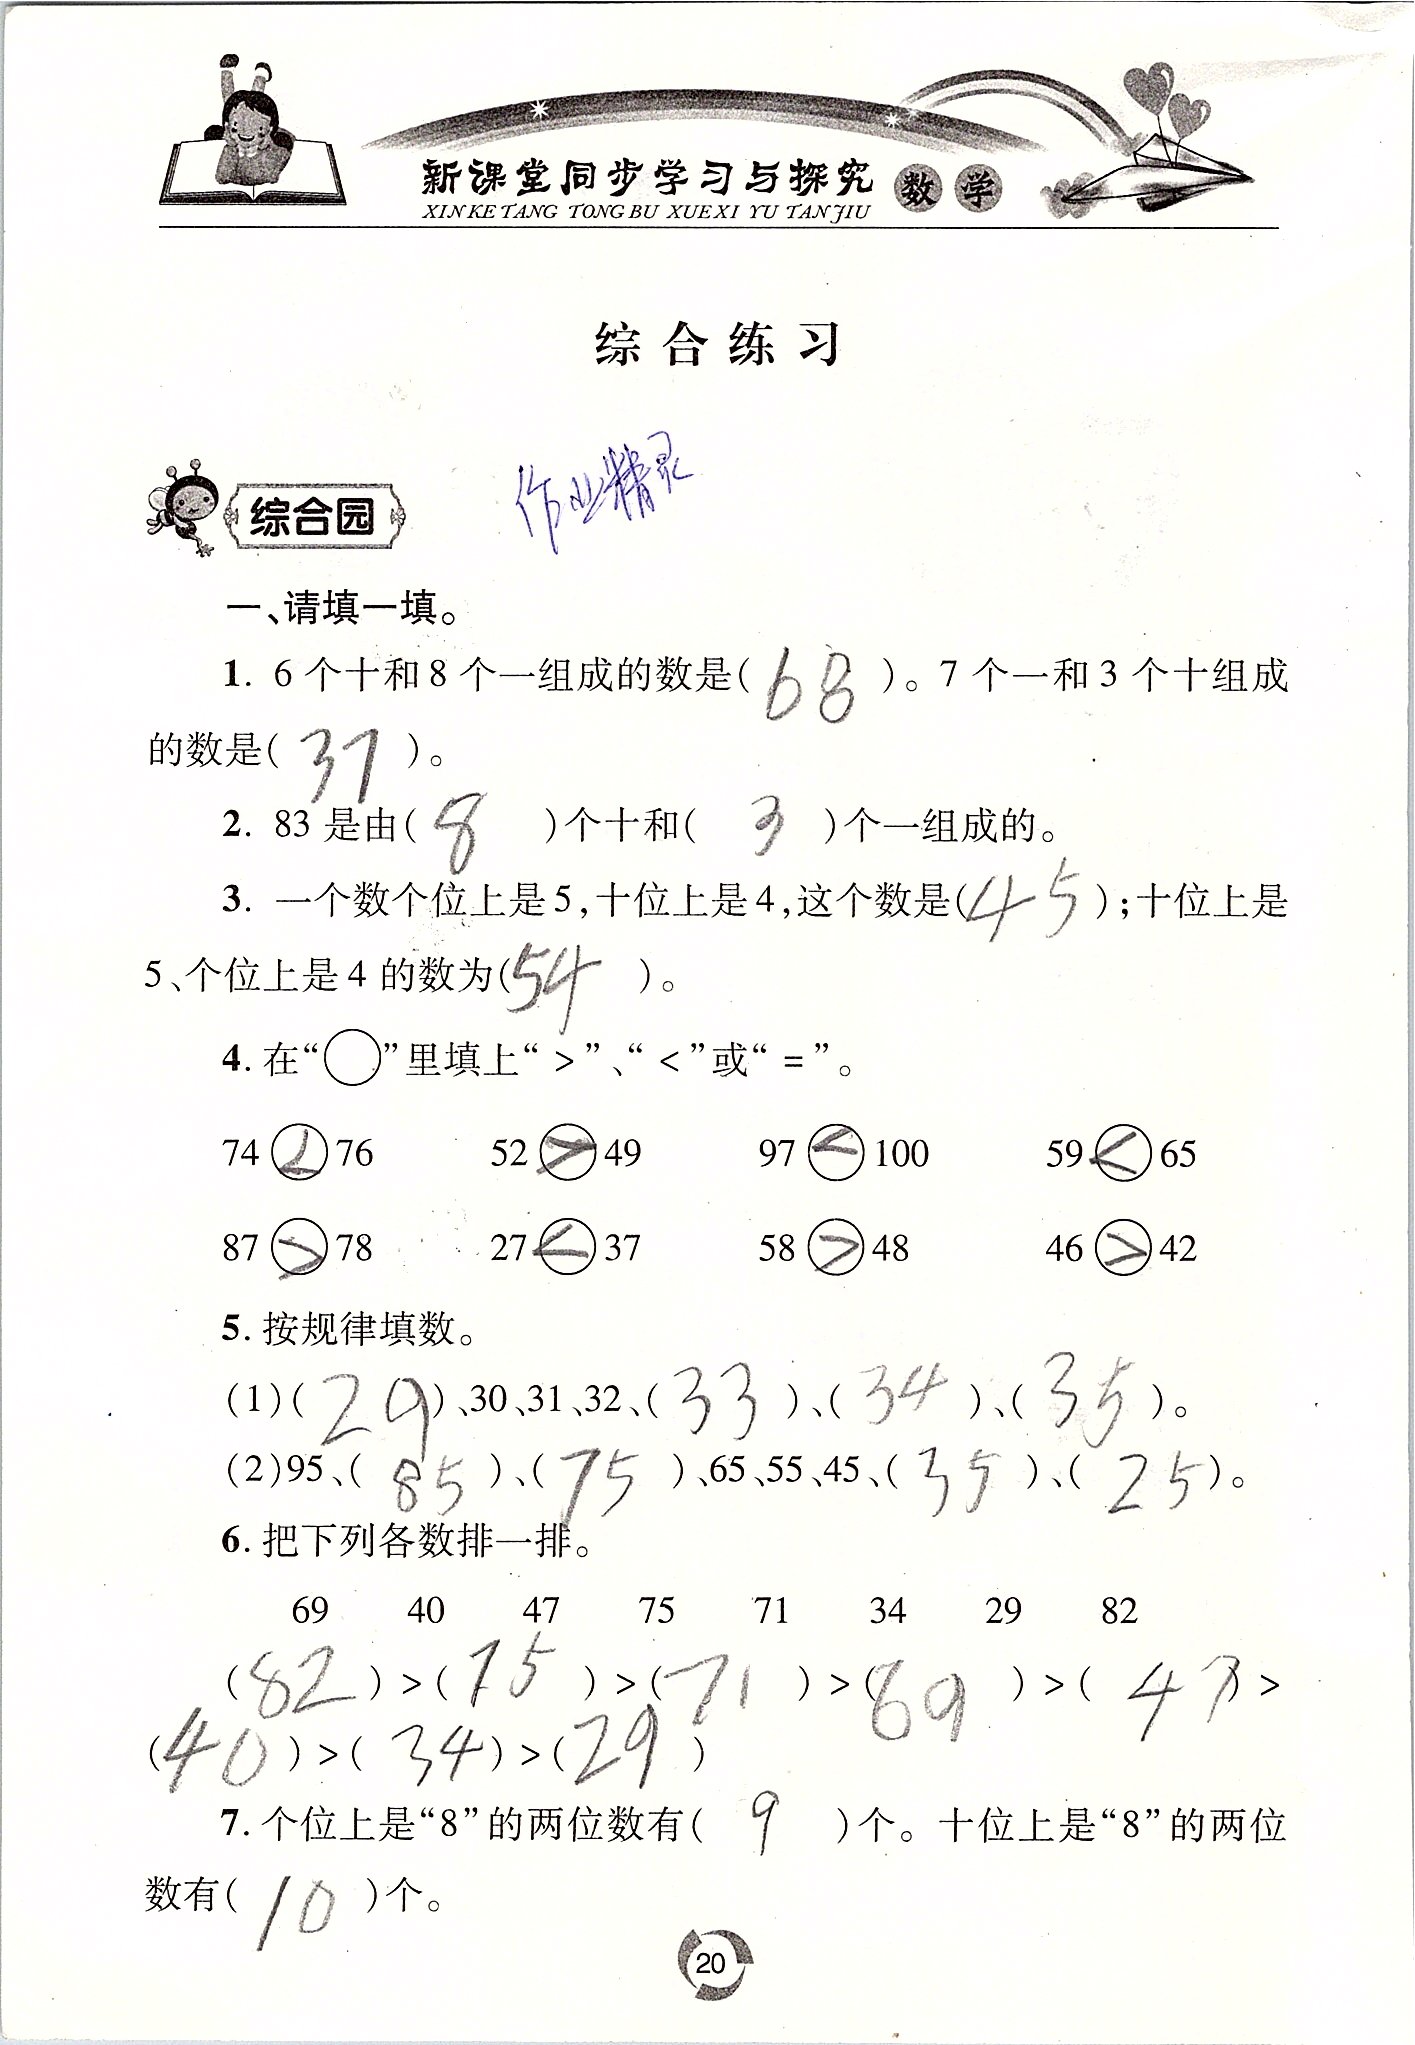 新课堂同步学习与探究 数学
XIN KE TANG TONG BU XUE XI YU TAN JIU
综合练习
综合园
作业精灵
一、请填一填。
1. 6个十和8个一组成的数是( 68 )。7个一和3个十组成
的数是( 37 )。
2. 83是由( 8 )个十和( 3 )个一组成的。
3. 一个数个位上是5,十位上是4,这个数是( 45 );十位上是
5、个位上是4的数为( 54 )。
4. 在“○”里填上“>”、“<”或“=”。
74 < 76 52 > 49 97 < 100 59 < 65
87 > 78 27 < 37 58 > 48 46 > 42
5. 按规律填数。
(1)( 29 )、30、31、32、( 33 )、( 34 )、( 35 )。
(2)95、( 85 )、( 75 )、65、55、45、( 35 )、( 25 )。
6. 把下列各数排一排。
69 40 47 75 71 34 29 82
( 82 )>( 75 )>( 71 )>( 69 )>( 47 )>
( 40 )>( 34 )>( 29 )
7. 个位上是“8”的两位数有( 9 )个。十位上是“8”的两位
数有( 10 )个。
20